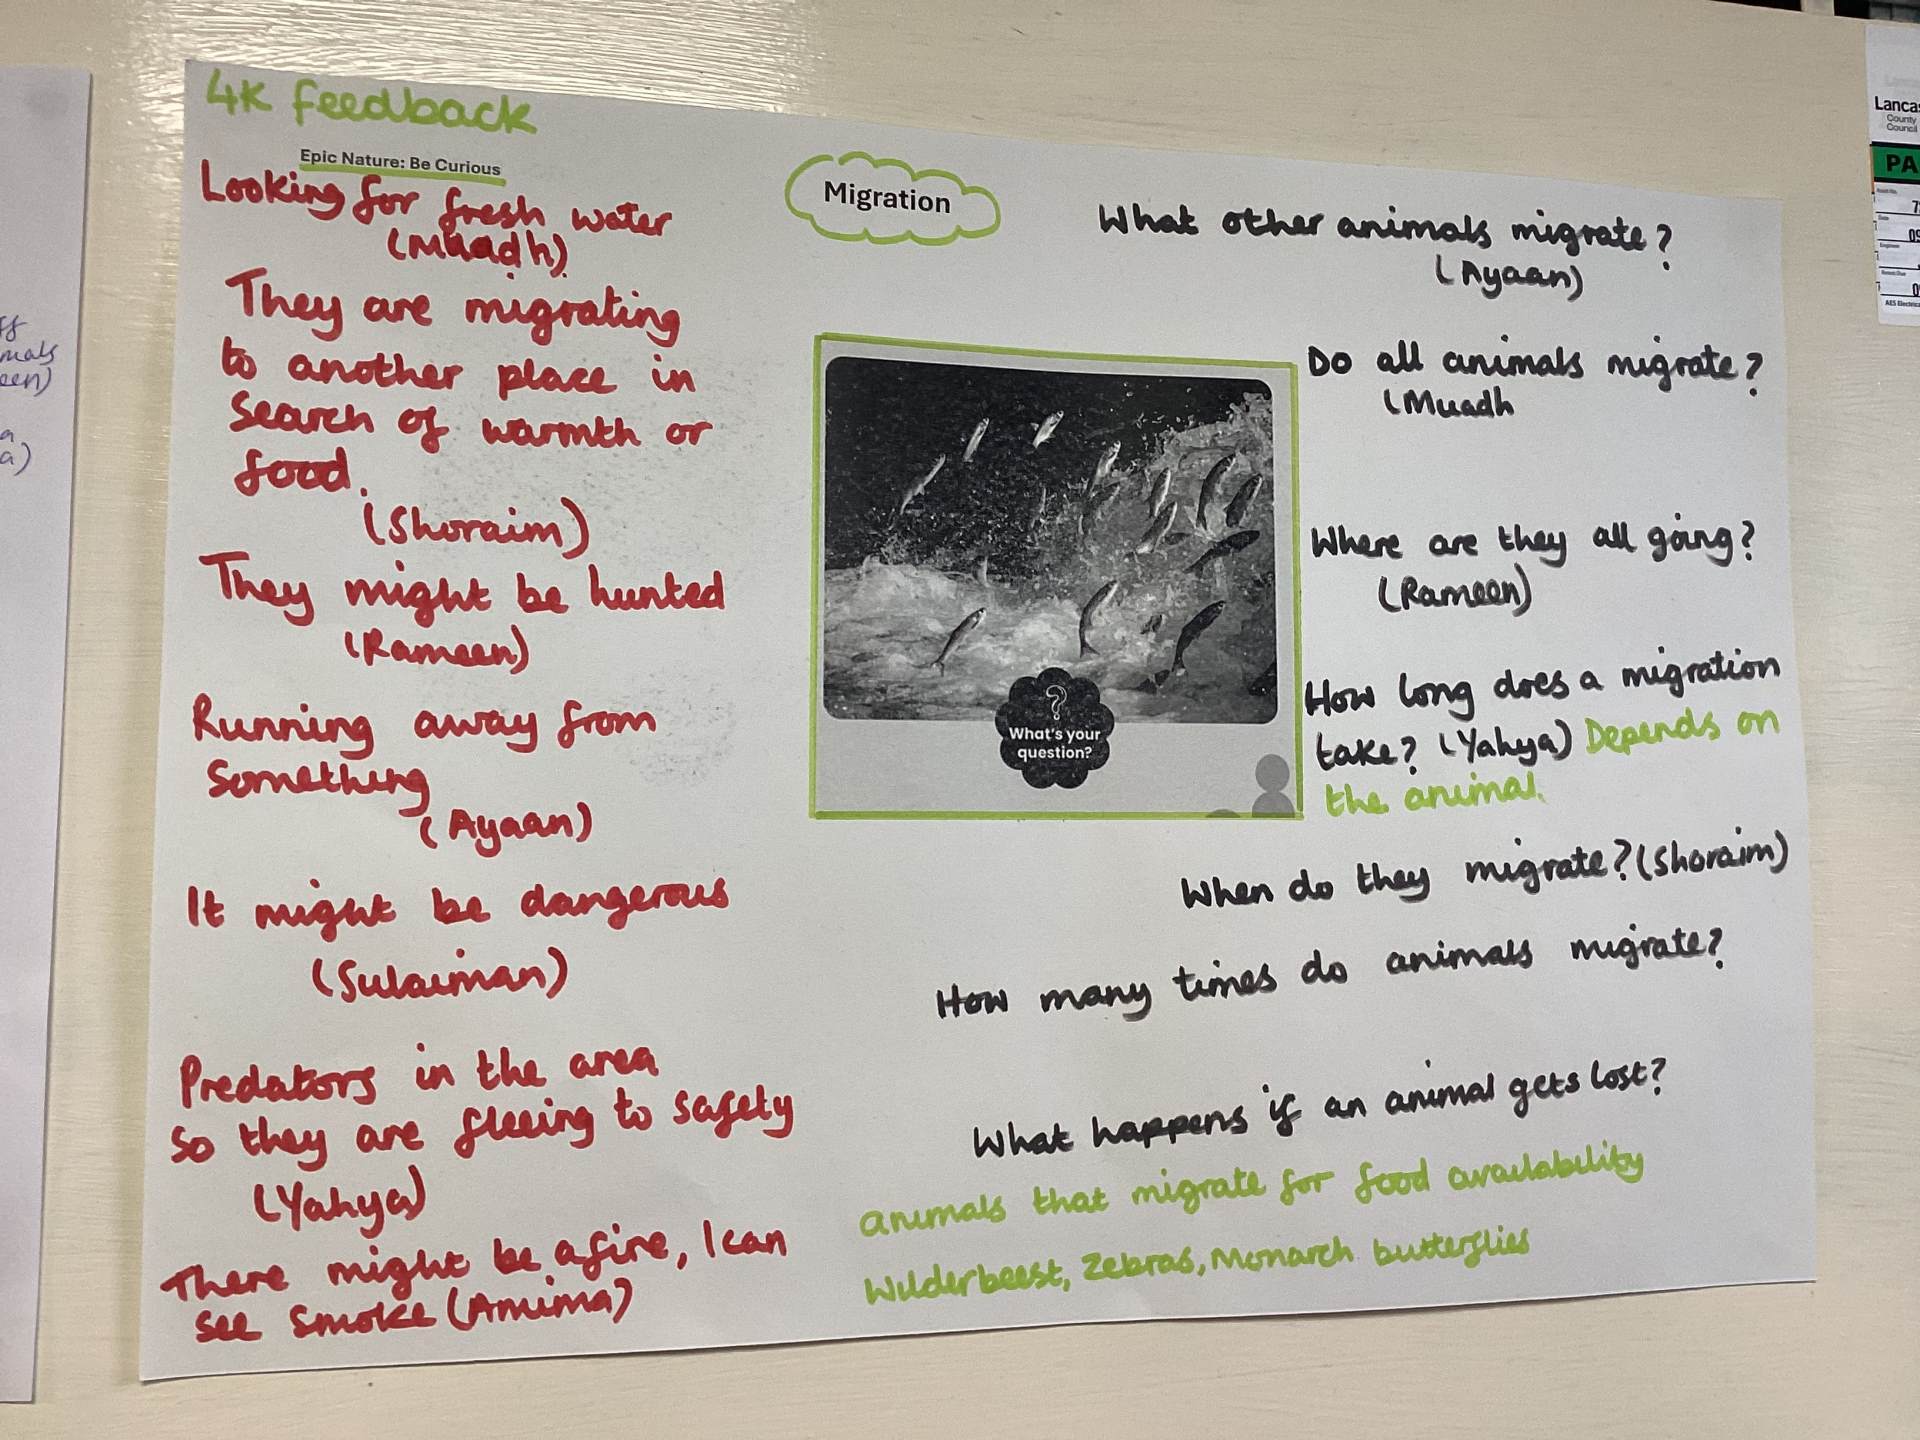 4K feedback
Epic Nature: Be Curious
Looking for fresh water
(Muadh)
They are migrating
to another place in
search of warmth or
food.
(Shoraim)
They might be hunted
(Rameen)
Running away from
something
(Ayaan)
It might be dangerous
(Sulaiman)
Predators in the area
so they are fleeing to safety
(Yahya)
There might be a fire, I can
see smoke (Amima)
Migration
What other animals migrate?
(Ayaan)
Do all animals migrate?
(Muadh
Where are they all going?
(Rameen)
How long does a migration
take? (Yahya) Depends on
the animal.
?
What's your
question?
When do they migrate? (Shoraim)
How many times do animals migrate?
What happens if an animal gets lost?
animals that migrate for food availability
Wilderbeest, Zebras, Monarch butterflies
een)
a)
County
Council
PA